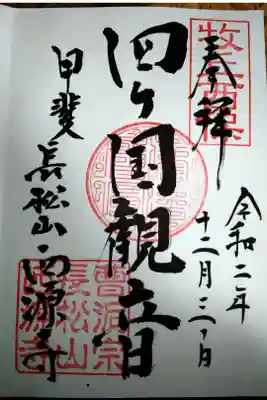 奉拝
令和二年
十二月
四ヶ国観音
甲斐 長松山 西源寺
曹洞宗
長松山
西源寺